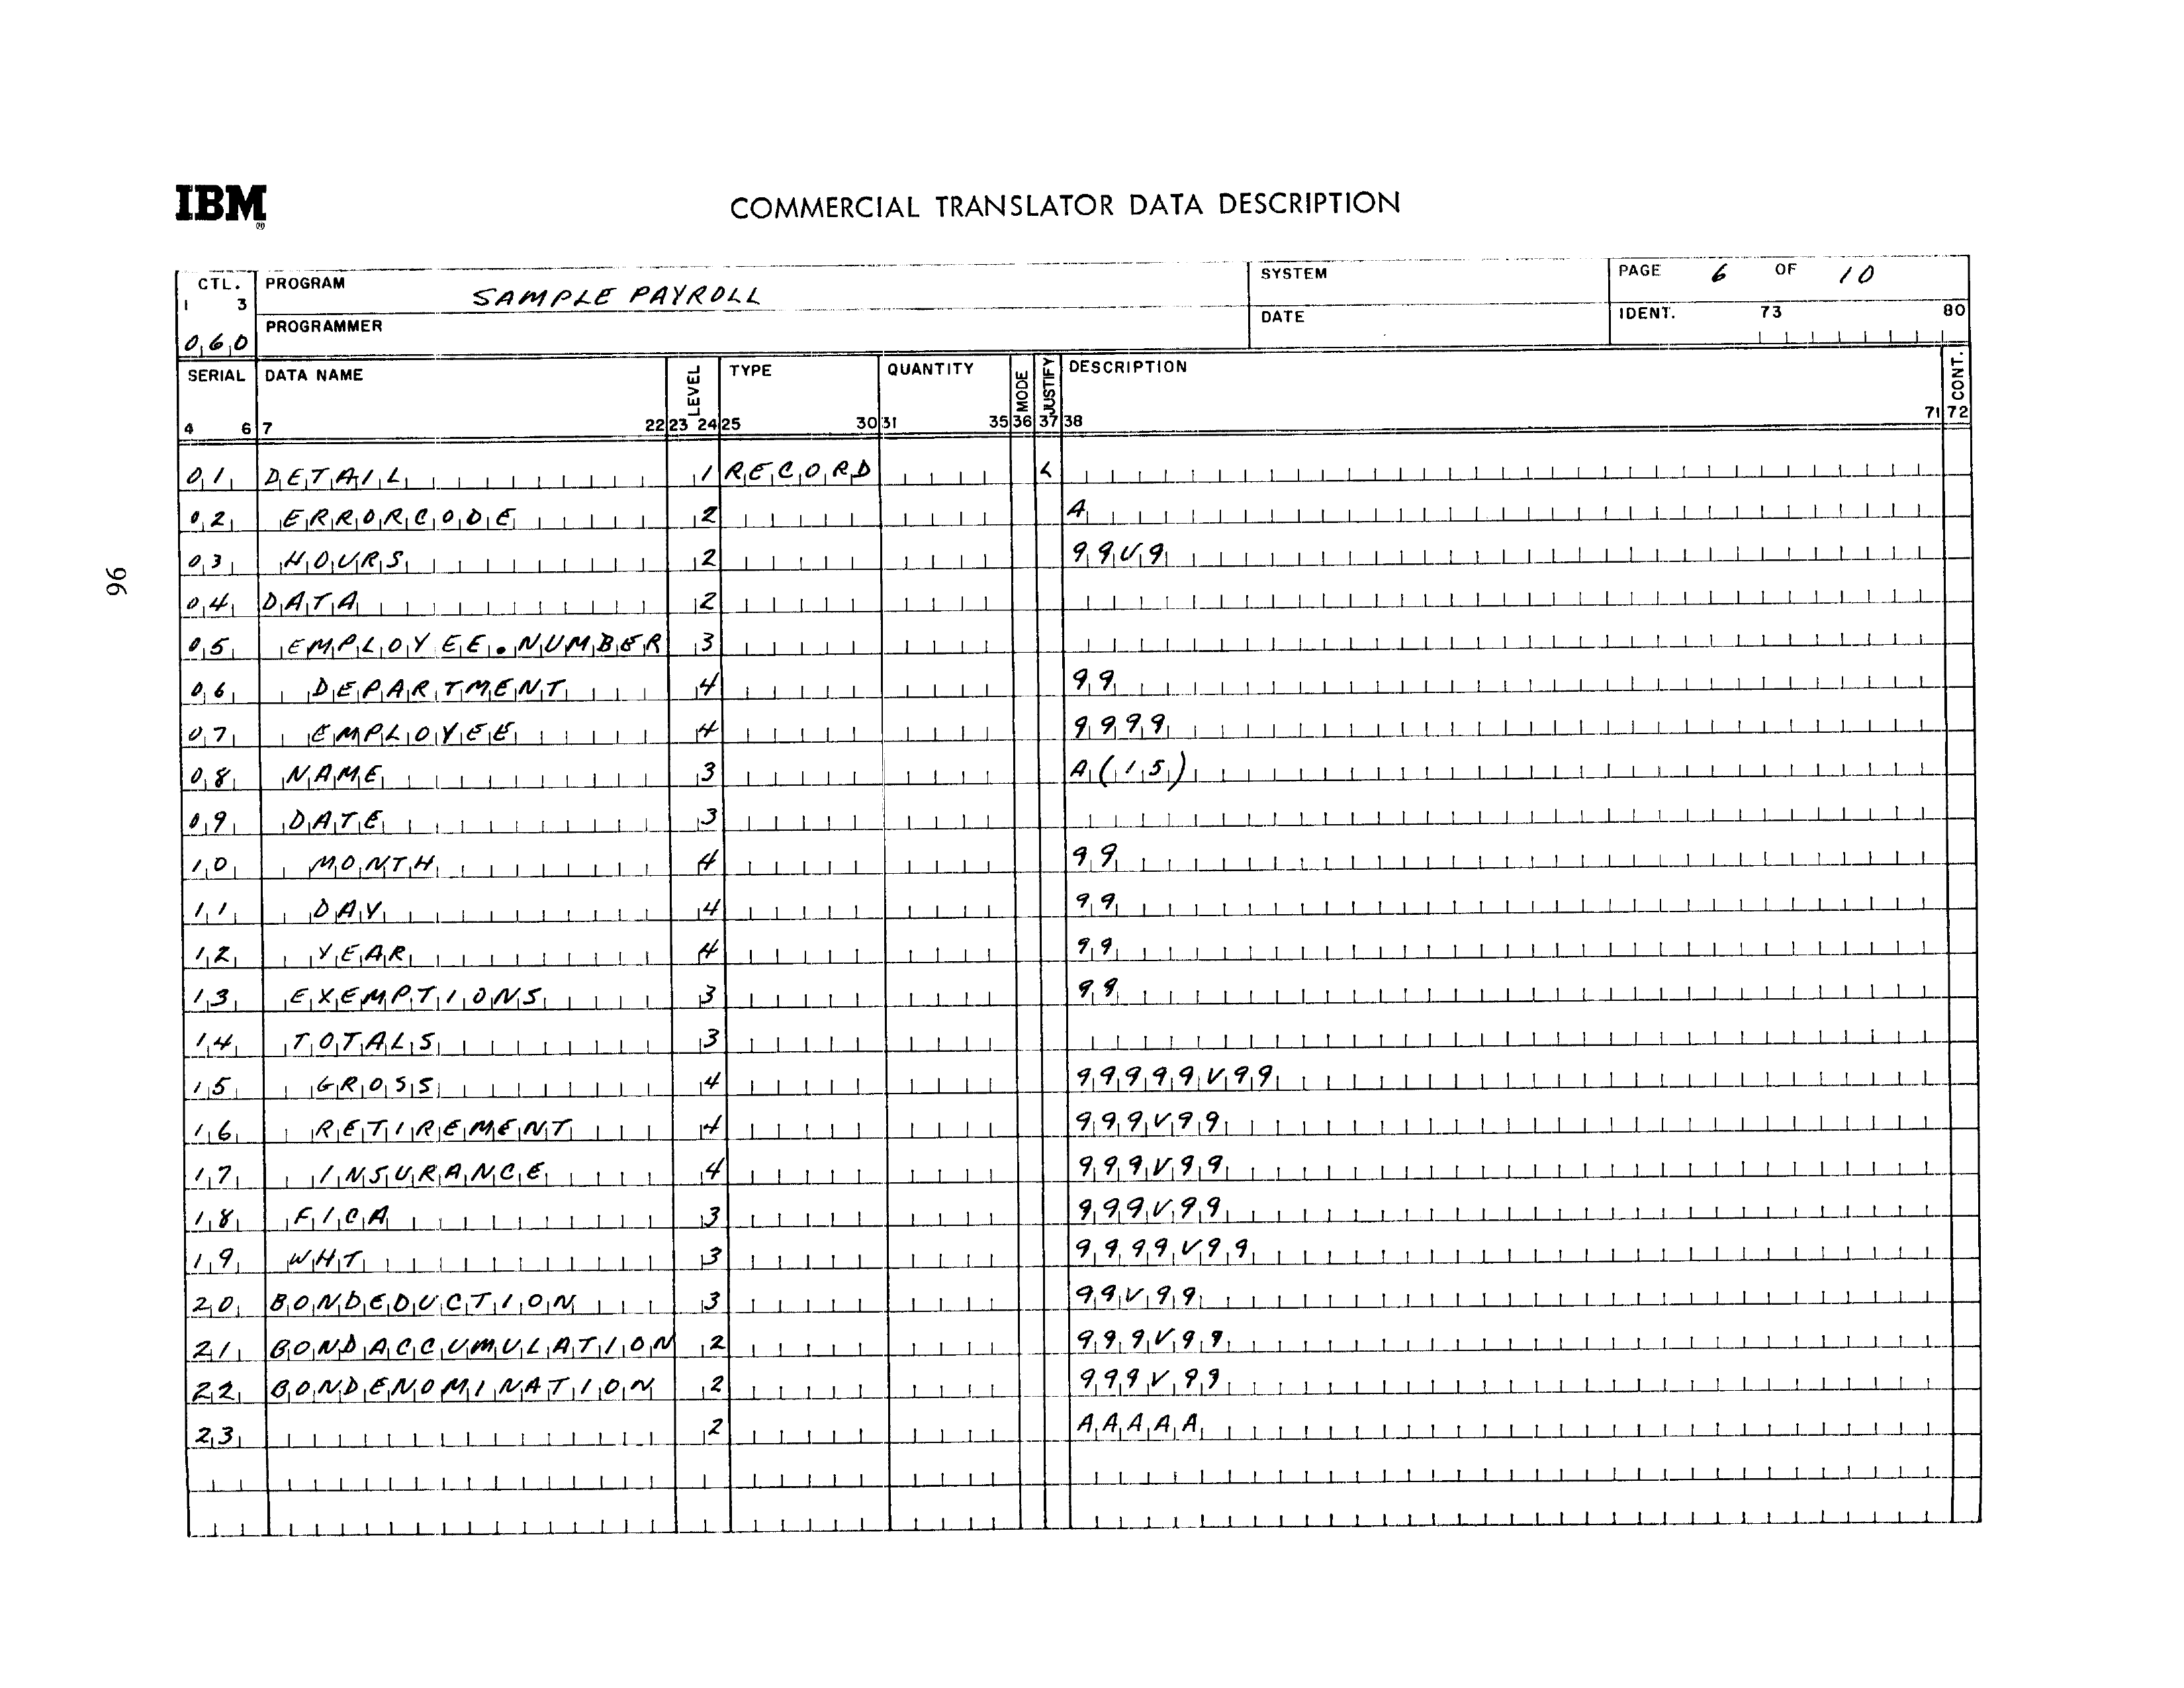 IBM
®
COMMERCIAL TRANSLATOR DATA DESCRIPTION
CTL. PROGRAM SAMPLE PAYROLL SYSTEM PAGE 6 OF 10
1 3
060 PROGRAMMER DATE IDENT. 73 80
SERIAL DATA NAME LEVEL TYPE QUANTITY MODE JUSTIFY DESCRIPTION CONT.
4 6 7 22 23 24 25 30 31 35 36 37 38 71 72
01 DETAIL 1 RECORD L
02 ERRORCODE 2 A
03 HOURS 2 99V9
04 DATA 2
05 EMPLOYEE.NUMBER 3
06 DEPARTMENT 4 99
07 EMPLOYEE 4 9999
08 NAME 3 A(15)
09 DATE 3
10 MONTH 4 99
11 DAY 4 99
12 YEAR 4 99
13 EXEMPTIONS 3 99
14 TOTALS 3
15 GROSS 4 99999V99
16 RETIREMENT 4 999V99
17 INSURANCE 4 999V99
18 FICA 3 999V99
19 WHT 3 9999V99
20 BONDEDUCTION 3 99V99
21 BONDACCUMULATION 2 999V99
22 BONDENOMINATION 2 999V99
23 2 AAAAA
96